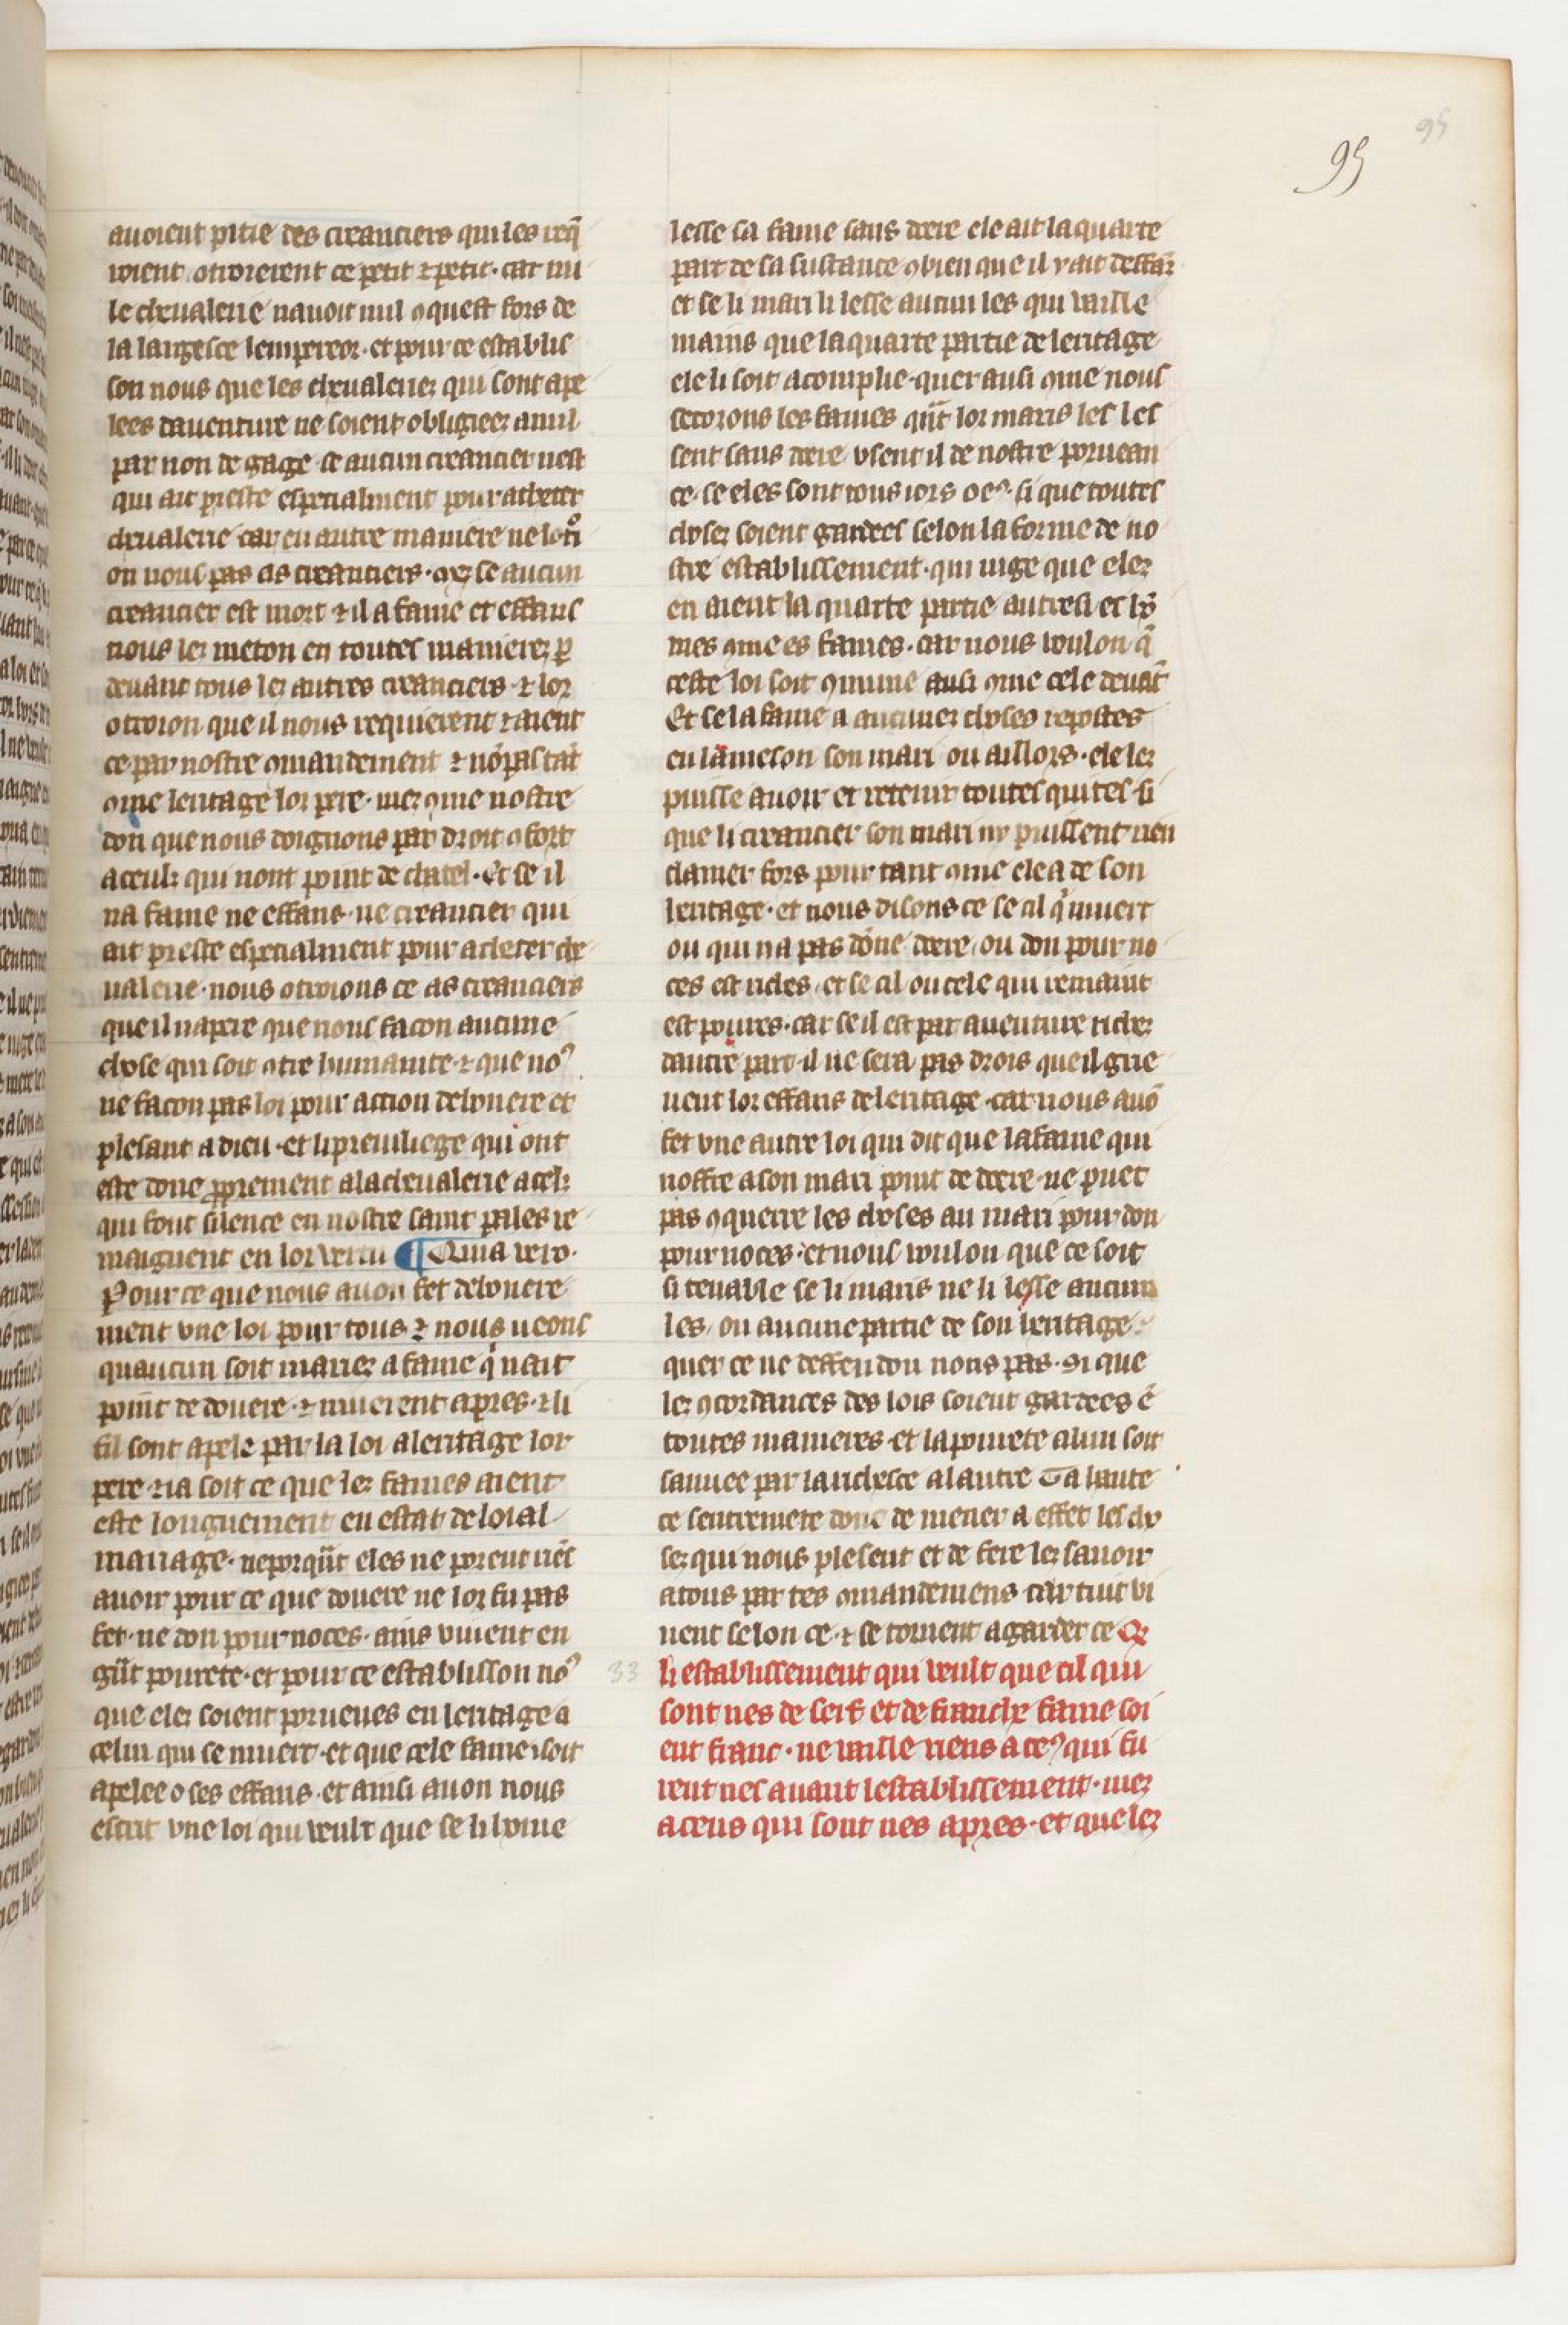 95
95
auoient pitie des creanciers qui les req̃
roient otroierent ce petit ⁊ petit · car nu
le cheualerie nauoit nul ɔquest fors de
la largesce lempereor · et pour ce establis
son nous que les cheualeriez qui sont ape
lees dauenture ne soient obligieez a nul
par non de gage se aucun creancier nest
qui ait preste especialment pour acheter
cheualerie car en autre maniere ne
on nous pas as creanciers · mez se aucun
creancier est mort ⁊ il a fame et effans
nous lez meton en toutes manierez ꝑ
deuant tous lez autres creanciers · ⁊ lor
otroion que il nous requierent ⁊ aient
ce par nostre ɔmandement ⁊ nõ pas tãt
ɔme leritage lor pere · mez ɔme nostre
don que nous doignons par droit ɔfort
a ceulz qui nont point de chatel · Et se il
na fame ne effans · ne creancier qui
ait preste especialment pour acheter che
ualerie · nous otroions ce as creanciers
que il napere que nous facon aucune
chose qui soit ɔtre humanite · ⁊ que noꝰ
ne facon pas loi pour action delouere et
plesant a dieu · et li preuiliege qui ont
este done proprement a la cheualerie a celz
qui font silence en nostre saint pales re
maignent en lor vertu ¶ Quia vero ·
Pour ce que nous auon fet delouere
ment vne loi pour tous ⁊ nous ueons
quaucun soit mariez a fame q̇ nait
point de douere · ⁊ muerent apres · ⁊ li
fil sont apele par la loi a leritage lor
pere · ⁊ ia soit ce que lez fames aient
este longuement en estat de loial
mariage · neporq̃nt eles ne porent riẽs
auoir pour ce que douere ne lor fu pas
fet · ne don pour noces · ains viuent en
gñt pourete · et pour ce establisson noꝰ
que elez soient porueues en leritage a
celui qui se muert · et que cele fame soit
apelee o ses effans · et ainsi auon nous
escrit vne loi qui veult que se li home
lesse sa fame sans doere ele ait la quarte
part de sa sustance ɔbien que il y ait deffãz
et se li mari li lesse aucun les qui vaille
mains que la quarte partie de leritage
ele li soit acomplie · quer ausi ɔme nous
secorons les fames qũt lor maris les les
sent sans doere vsent il de nostre poruean
ce · se eles sont tous iors o eꝰ · si que toutes
chosez soient gardees selon la forme de no
stre establissement · qui iuge que elez
en aient la quarte partie autresi es hõ
mes ɔme es fames · car nous voulon q̃
ceste loi soit ɔmune ausi ɔme cele deuãt
Et se la fame a aucunez choses repostes
en la meson son mari ou aillors · ele lez
puisse auoir et retenir toutes quites · si
que li creancier son mari ny puissent rien
clamer fors pour tant ɔme ele a de son
leritage · et nous disons ce se cil q̇ muert
ou qui na pas dõne doere · ou don pour no
ces est riches · et se cil ou cele qui remaint
est poures · car se il est par auenture richez
dautre part il ne sera pas drois que il grie
uent lor effans de leritage · car nous auõ
fet vne autre loi qui dit que la fame qui
noffre a son mari point de doere · ne puet
pas ɔquerre les choses au mari pour don
pour noces · et nous voulon que ce soit
si tenable se li maris ne li lesse aucun
les · ou aucune partie de son leritage ·
quer ce ne deffendon nous pas · si que
lez ɔcordances des lois soient gardees ẽ
toutes manieres · et la pourete a lun soit
sauuee par la richesce a lautre Ta haute
ce sentremete donc de mener a effet les cho
sez qui nous plesent et de fere lez sauoir
a tous par tes ɔmandemens · car tuit vi
uent selon ce · ⁊ se tornent a garder ce Qe
33
li establissement qui veult que cil qui
sont nes de serf et de franche fame soi
ent franc · ne vaille riens a ceꝰ qui fu
rent nes auant lestablissement · mez
a ceus qui sont nes apres · et que lez